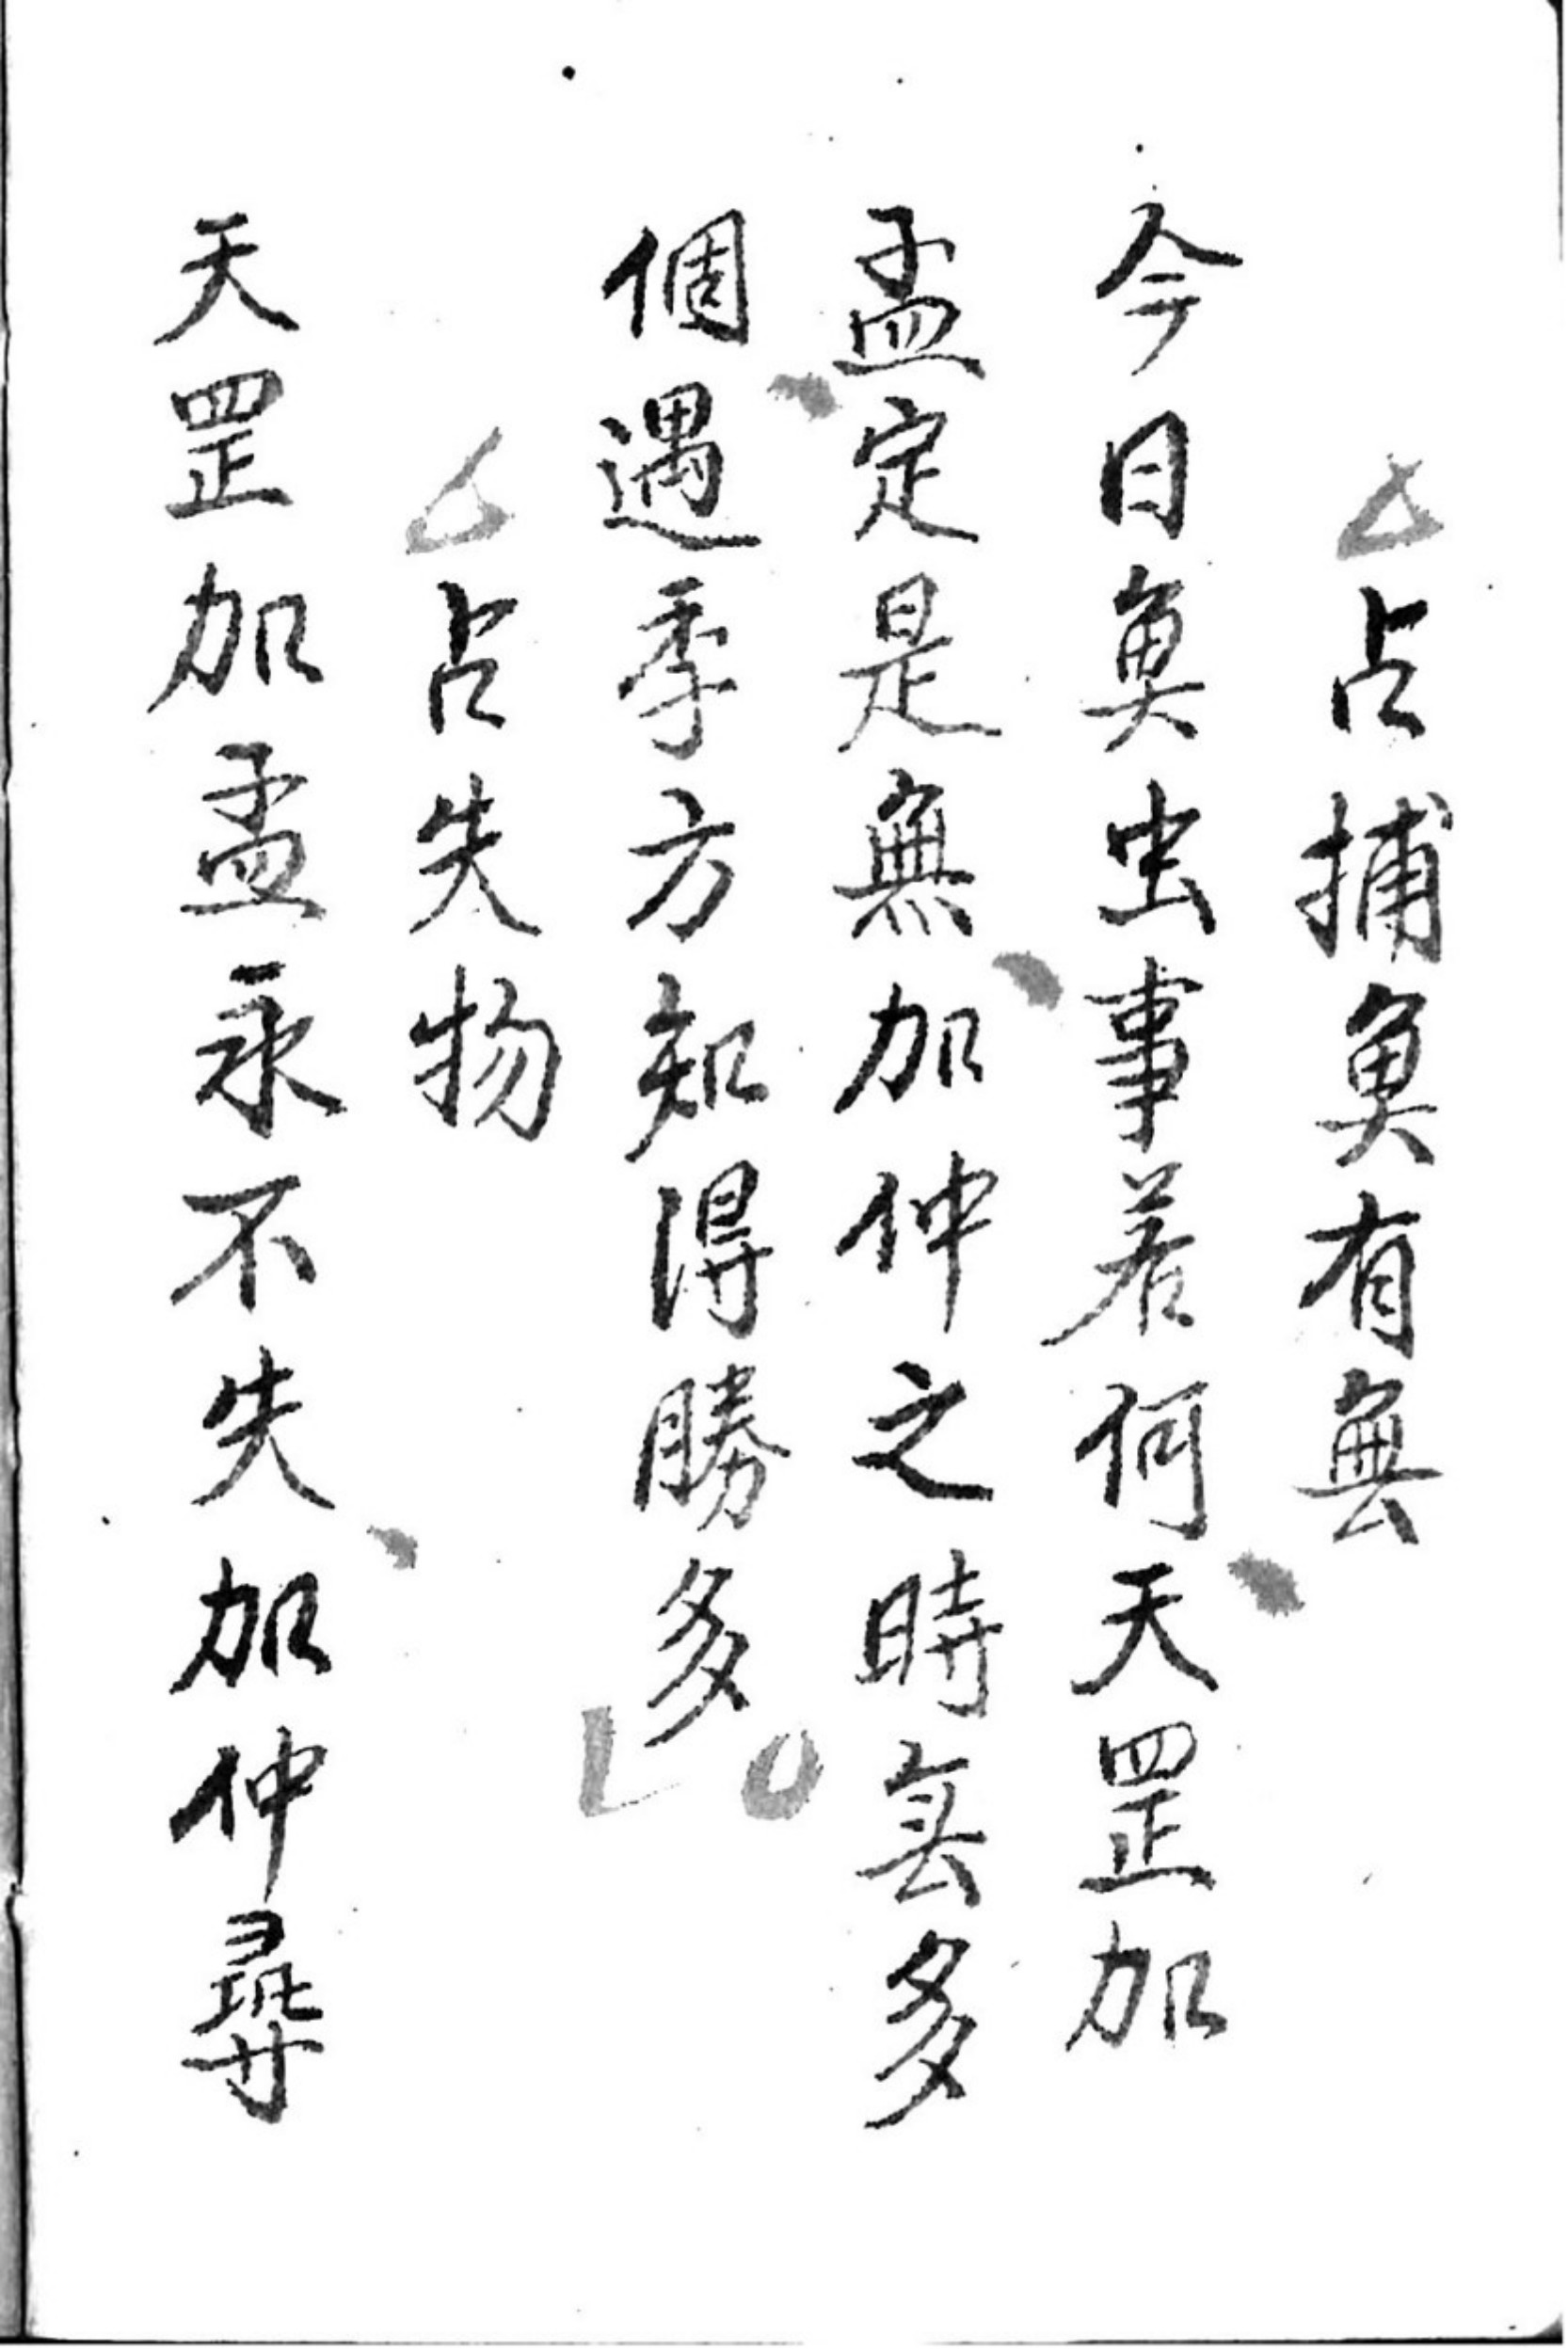 占捕魚有無
今日魚虫事若何天罡加
孟定是無加仲之時無多
個遇季方知得勝多
占失物
天罡加孟永不失加仲尋